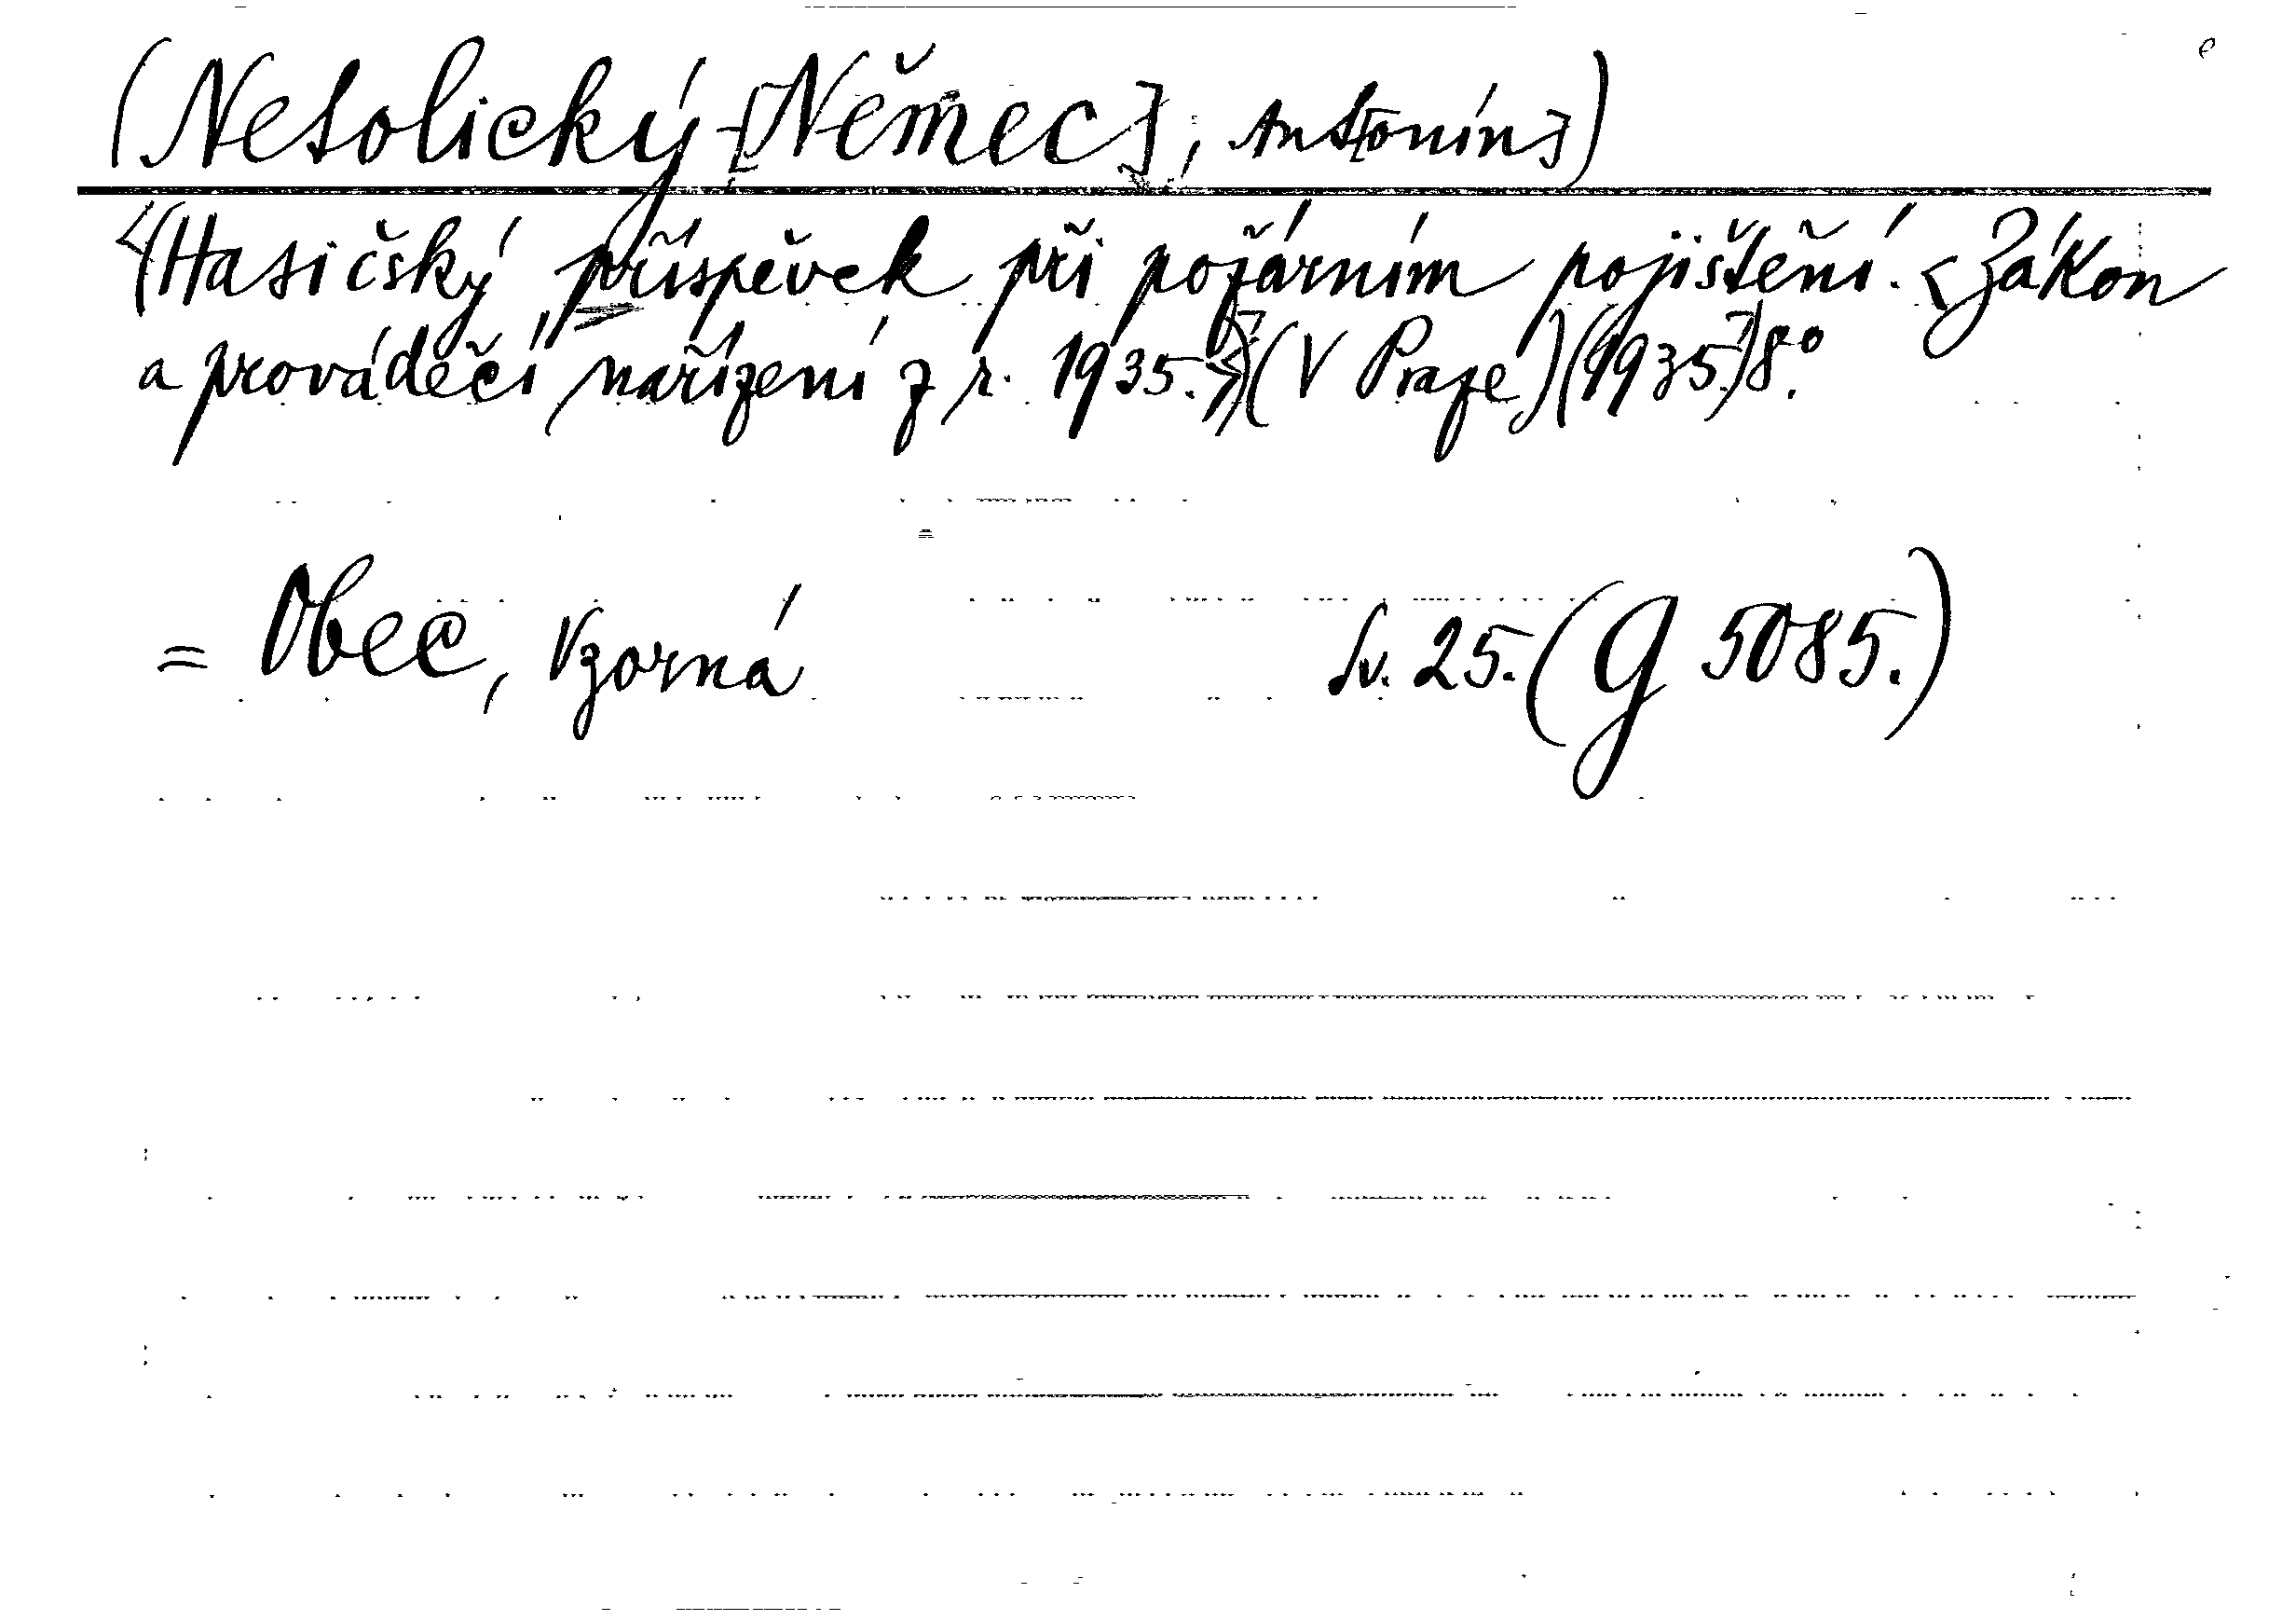 (Netolický-[Němec], Ant[onín])
<(Hasičský příspěvek při požárním pojištění. <Zákon
a prováděcí nařízení z r. 1935.>)>(V Praze)(1935.)8.°
= Obec, Vzorná Sv. 25. (G 5085.)